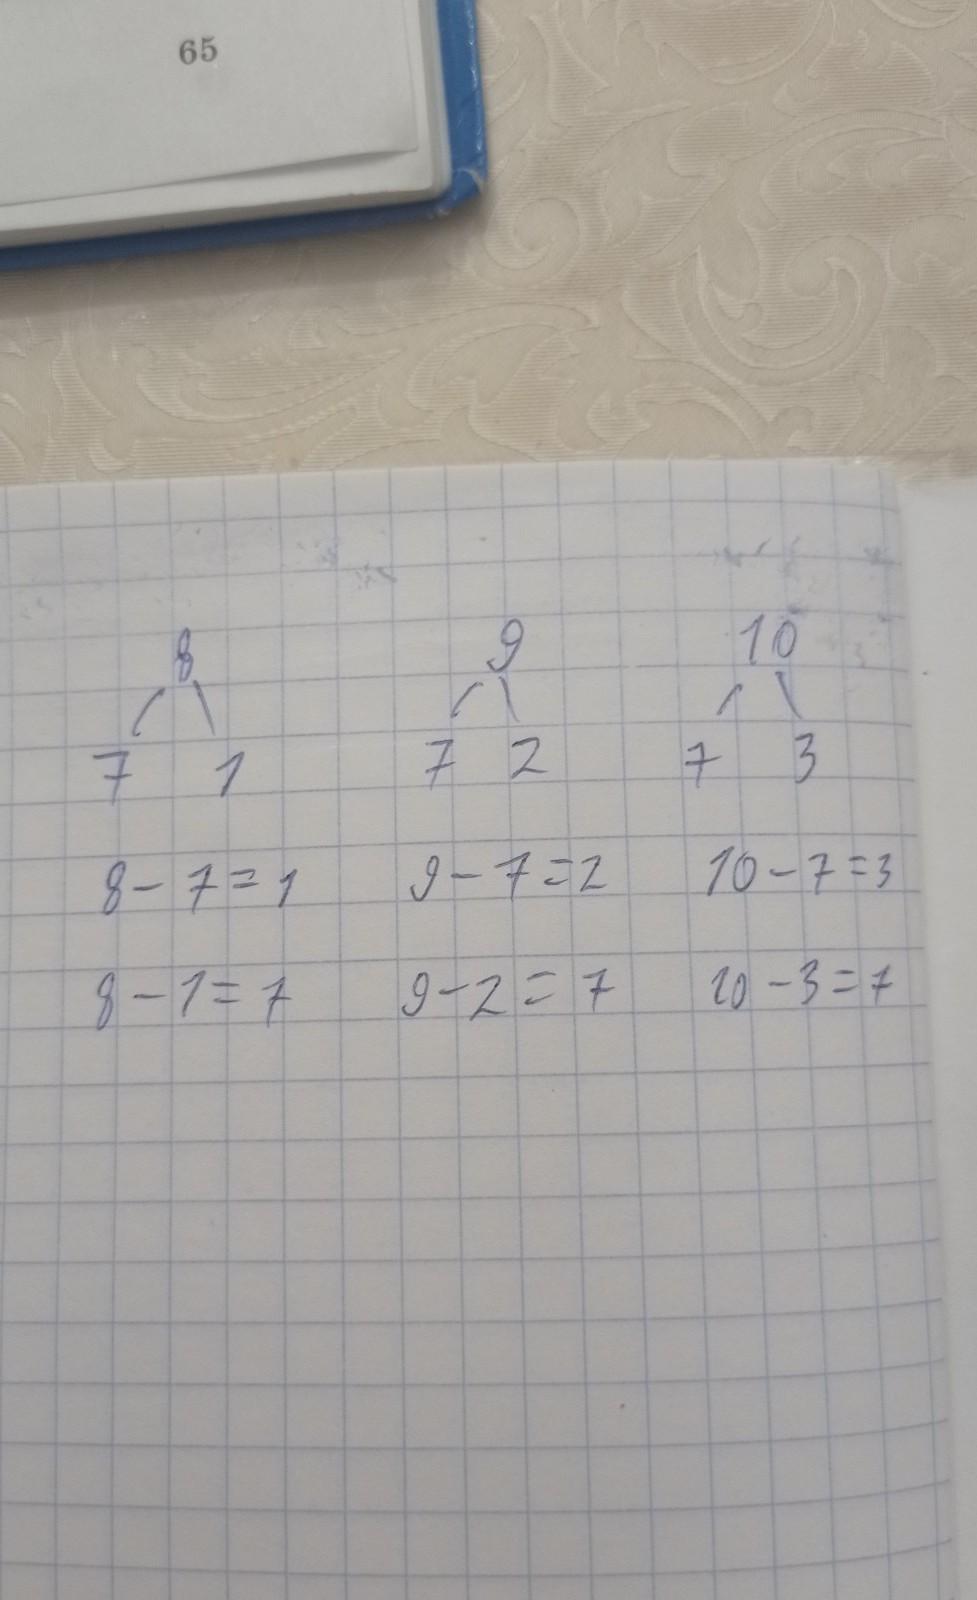 65
8 9 10
7 1 7 2 7 3
8-7=1 9-7=2 10-7=3
8-1=7 9-2=7 10-3=7